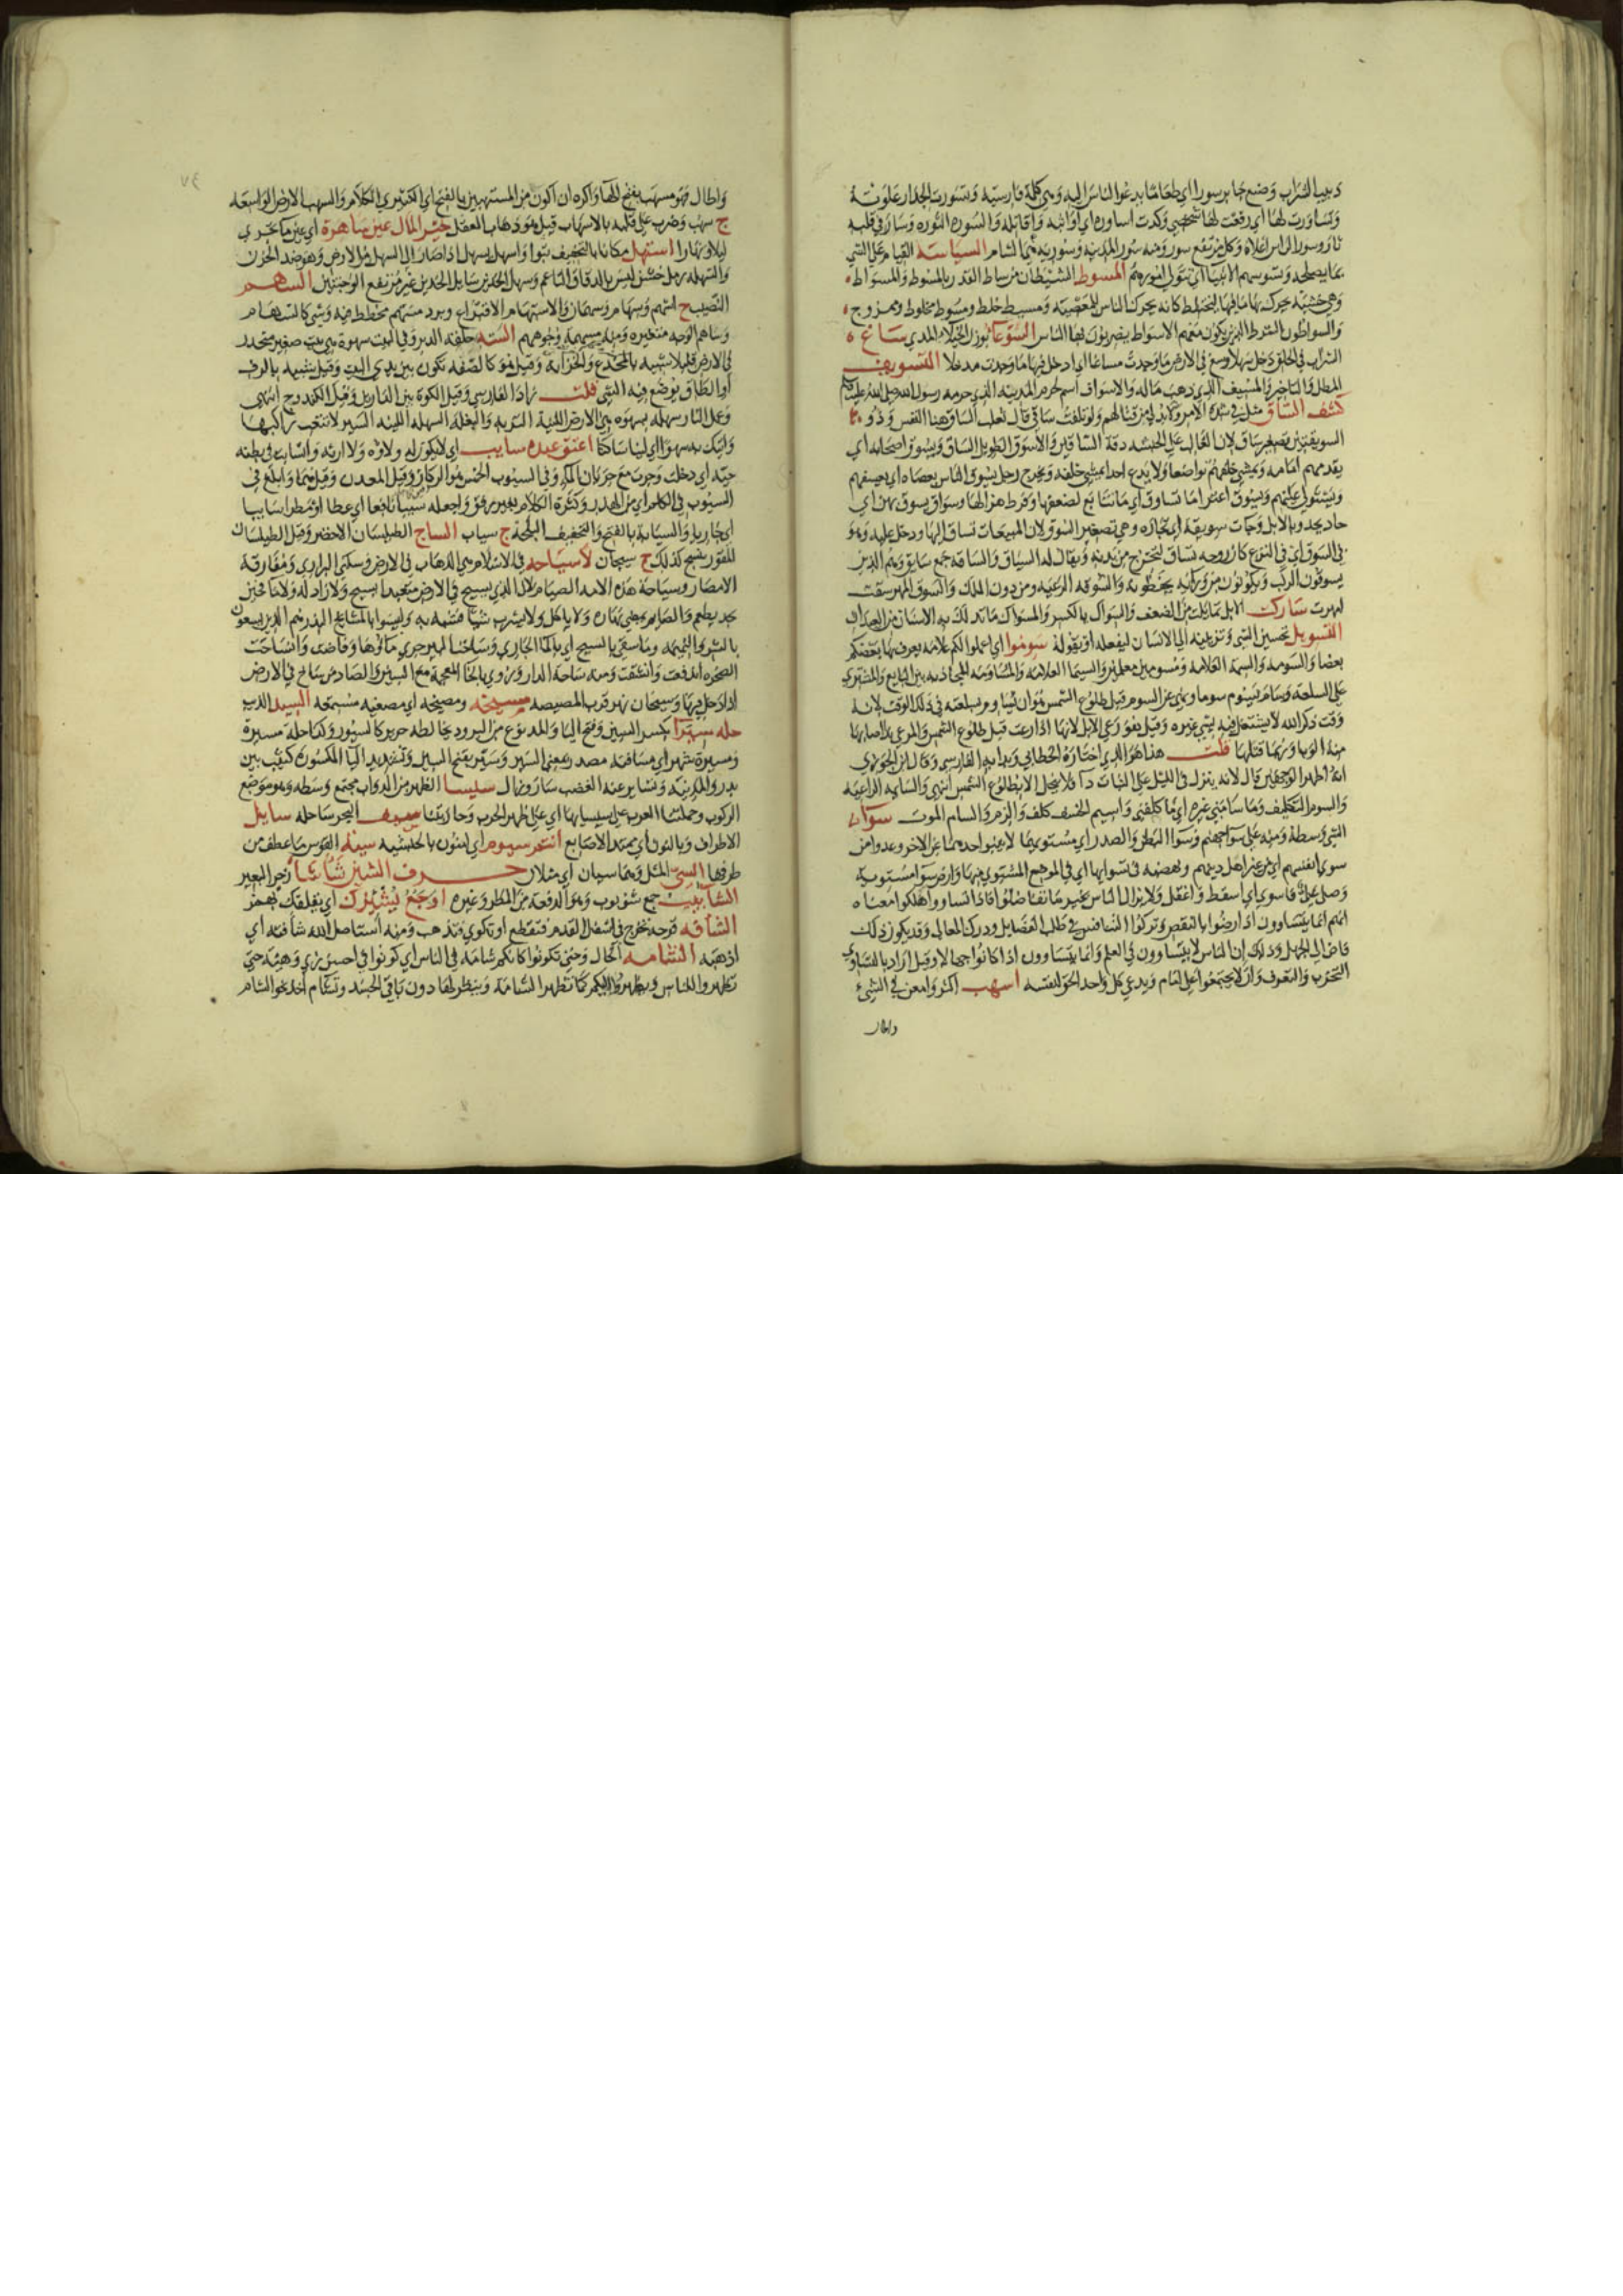 دبيب الشراب وضع جابر سورا اي طعاما يدعوا الناس اليه وهي كلمة فارسية وتسورت الجدار علوته
وتساورت لها اي رفعت لها شخصي وكدت اساوره اي اواثبه واقاتله والسورة الثورة وسار في قلبه
ثار وسورا لراس اعلاه وكل مرتفع سور ومنه سور المدينة وسورية هي الشام السياسة القيام على الشي
بما يصلحه وتسوسهم الانبيا اي تتولى امورهم المسوط الشيطان من ساط القدر بالمسوط والمسواط
وهي خشبة يحرك بها ما فيها ليختلط كانه يحرك الناس للمعصية ومسيط خلط ومسوط مخلوط وممزوج
والسواطون الشرط الذين يكون معهم الاسواط يضربون بها الناس السوعا بوزن الخيلا المذي ساغ
الشراب في الحلق دخل سهلا وسغ في الارض ما وجدت مساغا اي ادخل فيها ما وجدت مدخلا التسويف
المطل والتاخير والمسيف الذي ذهب ماله والاسواف اسم لحرم المدينة الذي حرمه رسول الله صلى الله عليه وسلم
كشف الساق مثل في شدة الامر ولا بد لي من قتالهم ولو تلفت ساقي قال ثعلب الساق هنا النفس وذو
السويقتين تصغير ساق لان الغالب على الحبشة دقة الساقين والاسوق الطويل الساق ويسوق اصحابه اي
يقدمهم امامه ويمشي خلفهم تواضعا ولا يدع احدا يمشي خلفه ويخرج رجل يسوق الناس بعصاه اي يعسفهم
ويستولي عليهم ويسوق اعنزا ما تساوق اي ما تتابع لضعفها وفرط هزالها وسواق يسوق بهن اي
حاد يحدو بالابل وجات سويقة اي تجارة وهي تصغير السوق لان المبيعات تساق اليها ودخل عليه وهو
في السوق اي في النزع كان روحه تساق لتخرج من بدنه ويقال له السياق والساقة جمع سايق وهم الذين
يسوقون الركب ويكونون من ورائه يحفظونه والسوقة الرعية ومن دون الملك والسوق المهر سقت
لمهرت تساوك الابل تمايلت من الضعف والسواك بالكسر والمسواك ما تدلك به الاسنان من العيدان
التسويل تحسين الشي وتزيينه الى الانسان ليفعله او يقوله سوموا اي اعملوا لكم علامة يعرف بها بعضكم
بعضا والسومة والسمة العلامة ومسومين معلمين والسيما العلامة والمساومة المجاذبة بين البايع والمشتري
على السلعة وسام يسوم سوما ونهى عن السوم قبل طلوع الشمس هو ان يساوم بسلعته في ذلك الوقت لانه
وقت ذكر الله لا يشتغل فيه بشي غيره وقيل هو رعي الابل لانها اذا رعت قبل طلوع الشمس والمرعى ند اصابها
منه الوبا وربما قتلها قلت هذا هو الذي اختاره الخطابي وبدا به الفارسي وقال ابن الجوزي
انه اظهر الوجهين قال لانه ينزل في الليل على النبات داء فلا ينحل الا بطلوع الشمس انتهى والسايمة الراعية
والسوم التكليف وما سامني غيره اي ما كلفني واسيم الخسف كلف والزم والسام الموت سواء
الشي وسطه ومنه على سوا جهنم وسوا البطن والصدر اي مستويهما لا ينبو احدهما عن الاخر وعدوا من
سوى انفسهم اي من غير اهل دينهم وبعضهم في تسوايها اي في الموضع المستوي منها وارض سوا مستوية
وصل علي فاسوى اي اسقط واغفل ولا يزال الناس بخير ما تفاضلوا فاذا تساووا هلكوا معناه
انهم انما يتساوون اذا رضوا بالنقص وتركوا التنافس في طلب الفضايل ودرك المعالي وقد يكون ذلك
خاصا في الجهل وذلك ان الناس لا يتساوون في العلم وانما يتساوون اذا كانوا جهالا وقيل اراد بالتساوي
التحزب والتفرق وان لا يجتمعوا على امام ويدعي كل واحد الحق لنفسه اسهب اكثر وامعن في الشي
واطال
٧٤
واطال فهو مسهب بفتح الها واكره ان اكون من المستهبين بالفتح اي الكثيري الكلام والسهب الارض الواسعة
ج سهب وضرب على قلبه بالاسهاب قيل هو ذهاب العقل خير المال عين ساهرة اي عين ما تجري
ليلا ونهارا استهل مكانا بالتخفيف تبوا واسهل يسهل اذا صار الى السهل من الارض وهو ضد الحزن
والسهلة رمل خشن ليس بالدقاق الناعم وسهل الخدين سايل الخدين غير مرتفع الوجنتين السهم
النصيب ج اسهم وسهام وسهمان والاستهام الاقتراع وبرد مسهم مخطط فيه وشي كالسهام
وساهم الوجه متغيره ومنه سهمة وجوههم السته حلقة الدبر وفي البيت سهوة هي بيت صغير منحدر
في الارض قليلا شبيه بالمخدع والخزانة وقيل هو كالصفة تكون بين يدي البيت وقيل شبيه بالرف
او الطاق يوضع فيه الشي قلت زاد الفارسي وقيل الكوة بين الدارين وقيل الكندوج انتهى
وعمل النار سهلة بسهوة هي الارض اللينة التربة والبغلة السهلة اللينة السير لا تتعب راكبها
واتيك به سهوا اي لينا ساكنا اعتق عبده سايب اي لا يكون له ولاؤه ولا ارثه وانسابت في بطنه
حية اي دخلت وجرت مع جريان الما وفي السيوب الخمس هو الركاز وقيل المعدن وقيل هما وابلغ في
السيوب في الكلام اي من الهذر وكثرة الكلام بغير رفق واجعله سيبا نافعا اي عطا او مطرا سايبا
اي جاريا والسيابة بالفتح والتخفيف البلحة ج سياب الساج الطيلسان الاخضر وقيل الطيلسان
المقور ينسج كذلك ج سيجان لا سياحة في الاسلام هي الذهاب في الارض وسكنى البراري ومفارقة
الامصار وسياحة هذه الامة الصيام لان الذي يسيح في الارض متعبدا يسيح ولا زاد له ولا ما فحين
يجد يطعم والصايم يمضي نهاره ولا ياكل ولا يشرب شيا فشبه به وليسوا بالمساييح البذر هم الذين يسعون
بالشر والنميمة وما سقي بالسيح اي بالما الجاري وساحت البير جرى ماؤها وفاضت وانساحت
الصخرة اندفعت وانشقت ومنه ساحة الدار ويروى بالخا المعجمة مع السين والصاد من ساخ في الارض
اذا دخل فيها وسيحان نهر قرب المصيصة مسيخة ومصيخة اي مصغية مستمعة السيد الذيب
حلة سيرا بكسر السين وفتح اليا والمد نوع من البرود يخالطه حرير كالسيور وكذا حلة مسيرة
ومسيرة شهر اي مسافته مصدر بمعنى السير وسير بفتح السين وتشديد اليا المكسورة كثيب بين
بدر والمدينة وتساير عنه الغضب سار وزال سيساء الظهر من الدواب مجتمع وسطه وهو موضع
الركوب وحملتنا العرب على سيسايها اي على ظهر الحرب وحاربتنا سيف البحر ساحله سايل
الاطراف وبالنون اي ممتد الاصابع انتم سيوم اي امنون بالحبشية سية القوس ما عطف من
طرفها السي المثل وهما سيان اي مثلان حرف الشين شأشأ زجر البعير
الشآبيب جمع شؤبوب وهو الدفعة من المطر وغيره اوجع يشئزك اي يقلقك بهمز
الشأفة قرحة تخرج في اسفل القدم فتقطع او تكوى فتذهب ومنه استاصل الله شأفته اي
اذهبه الشامة الخال وحتى تكونوا كانكم شامة في الناس اي كونوا في احسن زي وهيئة حتى
تظهروا للناس وينظروا اليكم كما تظهر الشامة وينظر لها دون باقي الجسد وتشام اخذ نحو الشام